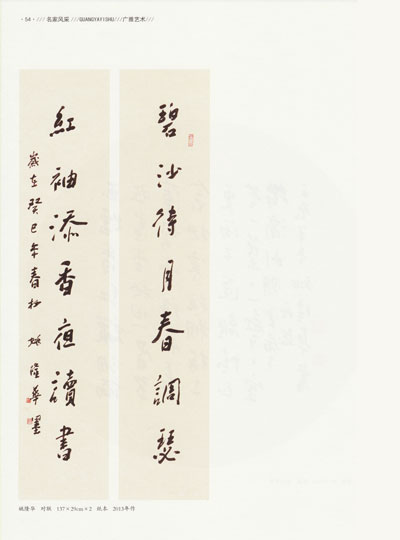 · 54 · /// 名家风采 ///GUANGYAYISHU///广雅艺术///
碧沙待月春調瑟
紅袖添香夜讀書
歲在癸巳年春杪 姚隆華墨
姚隆华 对联 137×29cm×2 纸本 2013年作